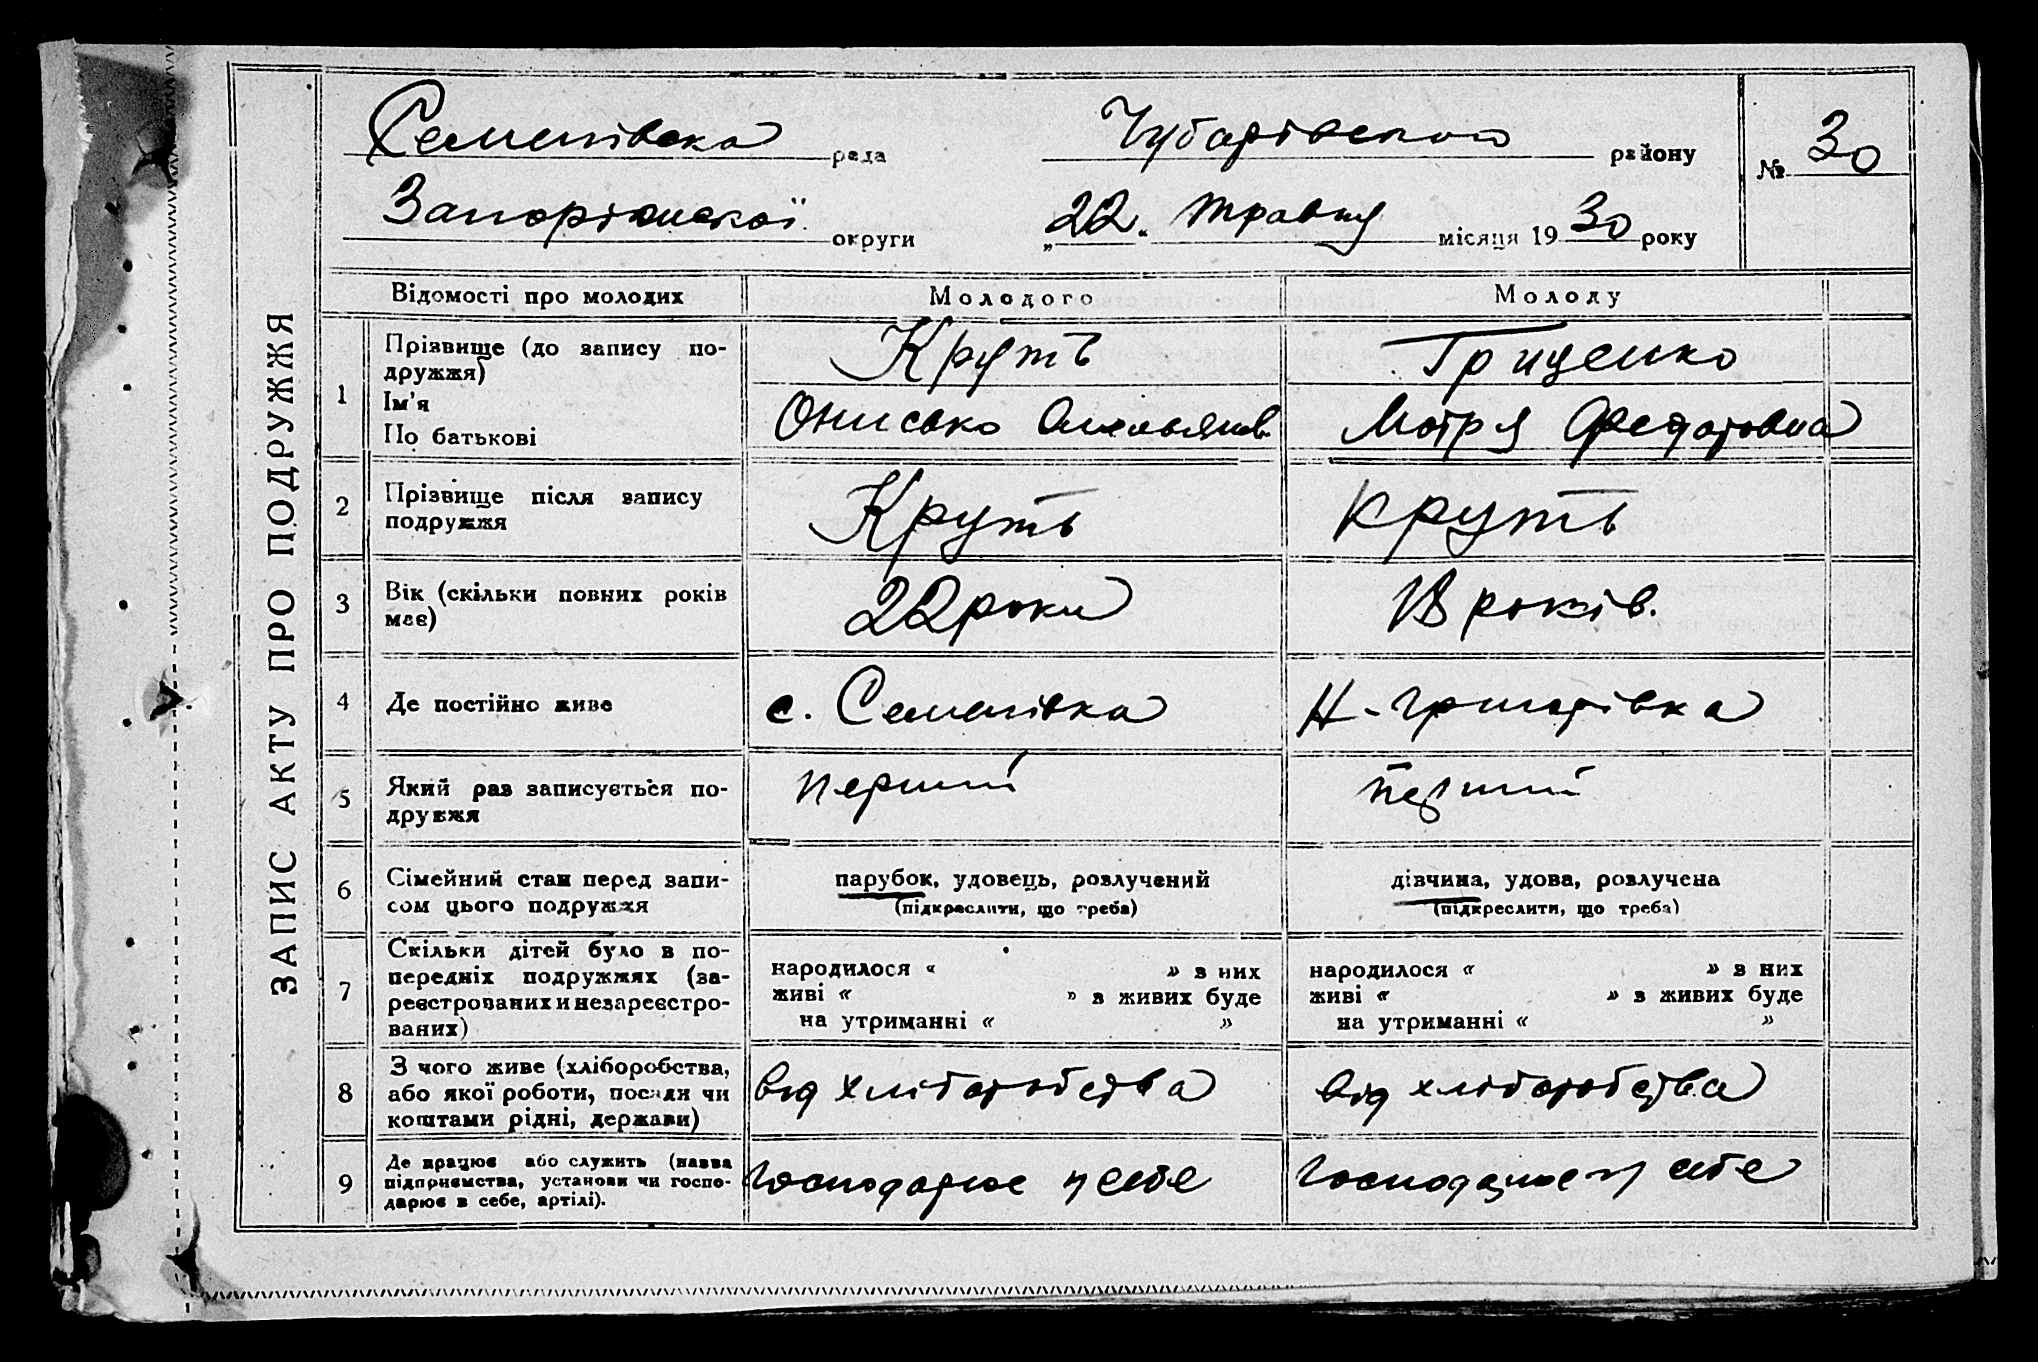 ЗАПИС АКТУ ПРО ПОДРУЖЖЯ
Семенівська рада Чубарівського району № 30
Запоріжської округи „22“ травня місяця 1930 року
Відомості про молодих Молодого Молоду
1 Прізвище (до запису по-
дружжя)
Ім'я
По батькові
Круть
Онисько Омельянов.
Гриценко
Мотря Федотовна
2 Прізвище після запису
подружжя
Круть
Круть
3 Вік (скільки повних років
має)
22 роки
18 років.
4 Де постійно живе
с. Семенівка
Н-Григорівка
5 Який раз записується по-
дружжя
перший
перший
6 Сімейний стан перед запи-
сом цього подружжя
парубок, удовець, розлучений
(підкреслити, що треба)
дівчина, удова, розлучена
(підкреслити, що треба)
7 Скільки дітей було в по-
передніх подружжях (за-
реєстрованих и незареєстро-
ваних)
народилося « » з них
живі « » з живих буде
на утриманні « »
народилося « » з них
живі « » з живих буде
на утриманні « »
8 З чого живе (хліборобства,
або якої роботи, посади чи
коштами рідні, держави)
від хліборобства
від хліборобства
9 Де працює або служить (назва
підприємства, установи чи госпо-
дарює в себе, артілі).
господарює у себе
господарює у себе